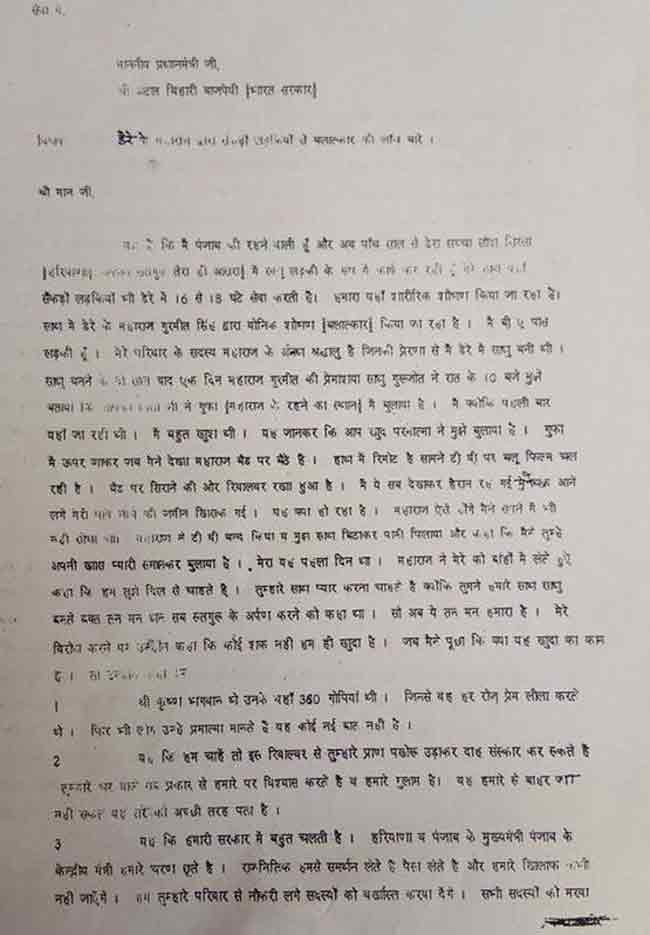 सेवा में,
माननीय प्रधानमंत्री जी,
श्री अटल बिहारी बाजपेयी [भारत सरकार]
विषय डेरे के महाराज द्वारा सैंकड़ों लड़कियों से बलात्कार की जाँच बारे ।
श्री मान जी,
यह है कि मैं पंजाब की रहने वाली हूँ और अब पाँच साल से डेरा सच्चा सौदा सिरसा
[हरियाणा, धन धन सतगुरु तेरा ही आसरा] में साधु लड़की के रूप में कार्य कर रही हूँ मेरे साथ यहाँ
सैंकड़ों लड़कियाँ भी डेरे में 16 से 18 घंटे सेवा करती है। हमारा यहाँ शारीरिक शोषण किया जा रहा है।
साथ में डेरे के महाराज गुरमीत सिंह द्वारा योनिक शोषण [बलात्कार] किया जा रहा है । मैं बी ए पास
लड़की हूँ । मेरे परिवार के सदस्य महाराज के अन्धे श्रद्धालु है जिनकी प्रेरणा से मैं डेरे में साधु बनी थी ।
साधु बनने के दो साल बाद एक दिन महाराज गुरमीत की प्रेमशिष्या साधु गुरूजोत ने रात के 10 बजे मुझे
बताया कि महाराज जी ने गुफा [महाराज के रहने का स्थान] में बुलाया है । मैं क्योंकि पहली बार
वहाँ जा रही थी । मैं बहुत खुश थी । यह जानकर कि आज खुद परमात्मा ने मुझे बुलाया है । गुफा
में ऊपर जाकर जब मैंने देखा महाराज बैड पर बैठे है । हाथ में रिमोट है सामने टी वी पर ब्लू फिल्म चल
रही है । बैड पर सिराने की ओर रिवाल्वर रखा हुआ है । मैं ये सब देखकर हैरान रह गई मुझे चक्कर आने
लगे मेरे पांव नीचे की जमीन खिसक गई । यह क्या हो रहा है । महाराज ऐसे होंगे मैंने सपने में भी
नहीं सोचा था। महाराज ने टी वी बन्द किया व मुझे साथ बिठाकर पानी पिलाया और कहा कि मैंने तुम्हें
अपनी खास प्यारी समझकर बुलाया है । मेरा यह पहला दिन था । महाराज ने मेरे को बाँहों में लेते हुए
कहा कि हम तुझे दिल से चाहते है । तुम्हारे साथ प्यार करना चाहते है क्योंकि तुमने हमारे साथ साधु
बनते वक्त तन मन धन सब सतगुरु के अर्पण करने को कहा था । सो अब ये तन मन हमारा है । मेरे
विरोध करने पर उन्होंने कहा कि कोई शक नहीं हम ही खुदा है । जब मैंने पूछा कि क्या यह खुदा का काम
है । तो उन्होंने कहा कि
1 श्री कृष्ण भगवान थे उनके यहाँ 360 गोपियाँ थी । जिनसे वह हर रोज प्रेम लीला करते
थे । फिर भी लोग उन्हें प्रमात्मा मानते है यह कोई नई बात नहीं है ।
2 यह कि हम चाहें तो इस रिवाल्वर से तुम्हारे प्राण पखेरू उड़ाकर दाह संस्कार कर सकते है
तुम्हारे घर वाले हर प्रकार से हमारे पर विश्वास करते है व हमारे गुलाम है। वह हमारे से बाहर जा
नहीं सकते यह तेरे को अच्छी तरह पता है ।
3 यह कि हमारी सरकार में बहुत चलती है । हरियाणा व पंजाब के मुख्यमंत्री पंजाब के
केन्द्रीय मंत्री हमारे चरण छूते है । राजनितिक हमसे समर्थन लेते है पैसा लेते है और हमारे खिलाफ कभी
नहीं जाएँगे । हम तुम्हारे परिवार से नौकरी लगे सदस्यों को बर्खास्त करवा देंगे । सभी सदस्यों को मरवा